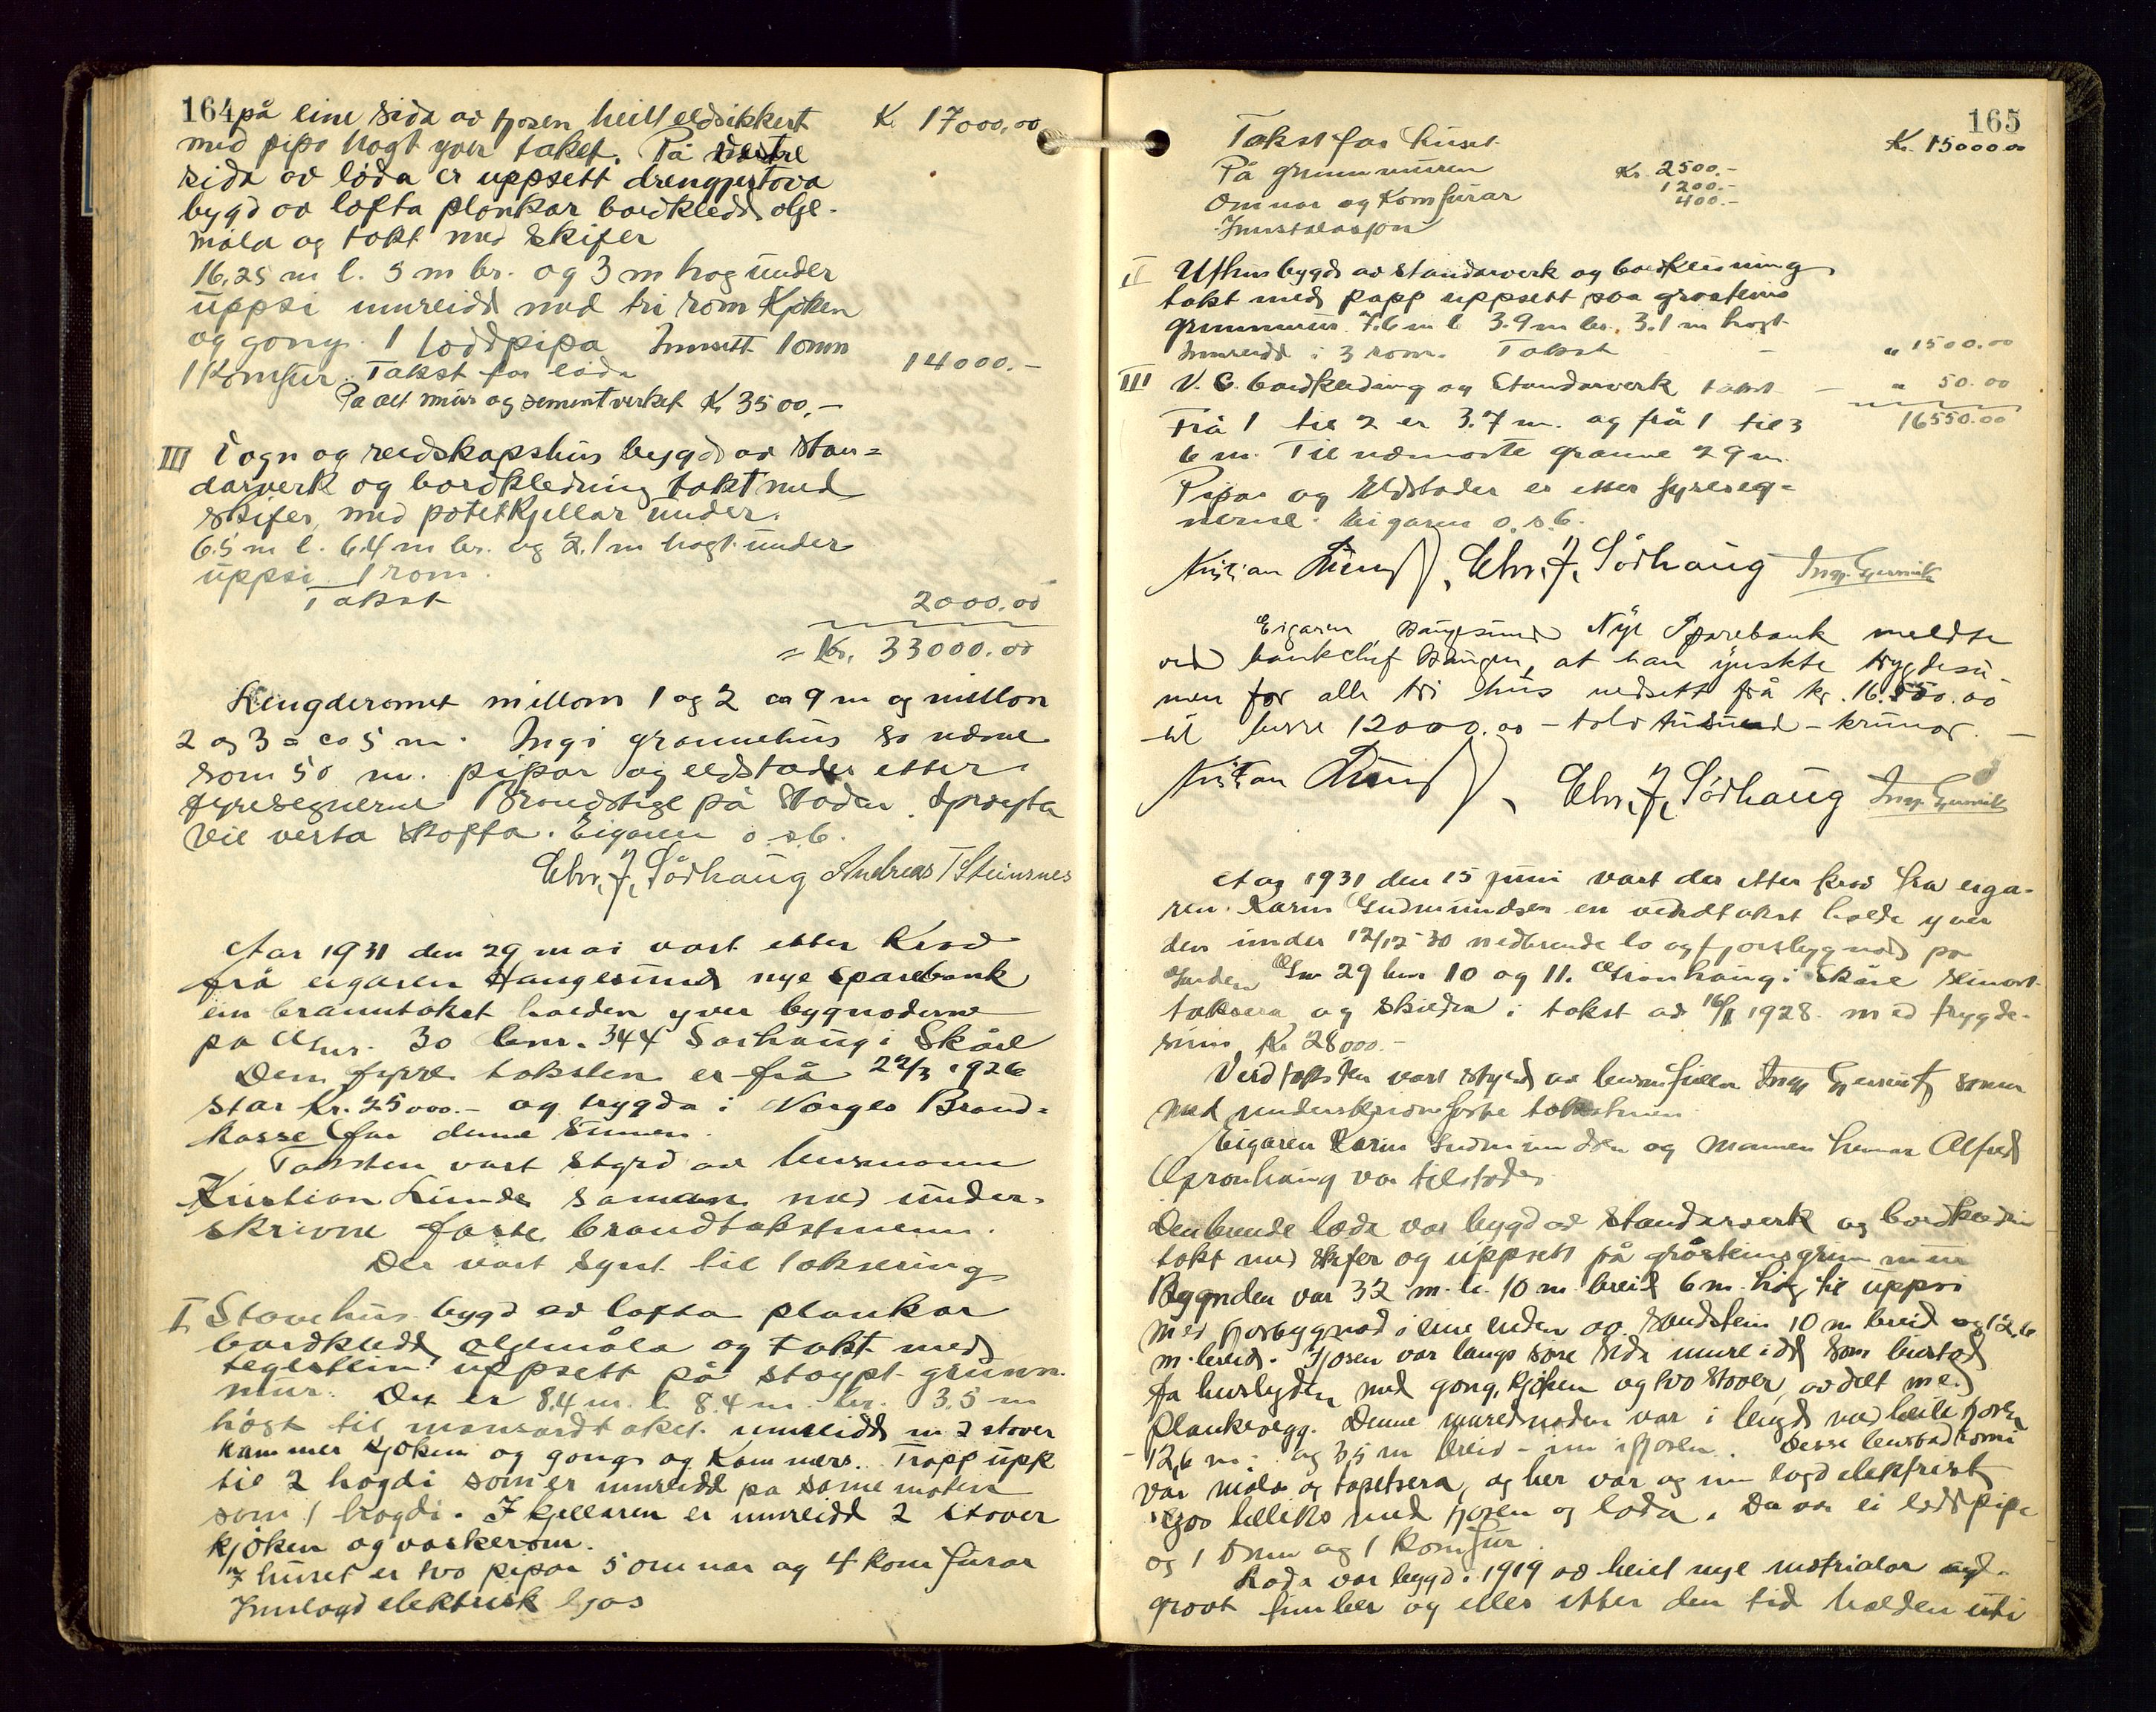 164 på eine sida av fjosen heilt eldsikkert Kr 17000,00
med pipo høgt yver taket. På vestre
sida av løda er uppsett drengjestova
bygd av lafta plankar bordkledd olje-
måla og tekt med skifer
16,25 m l. 5 m br. og 3 m høg under
uppsi innreidd med tri rom Kjøken
og gong. 1 loddpipa Innsett 1 omn
1 Komfur. Takst for løda 14000.-
På alt mur og sementverket Kr 3500,-
III Vogn og reidskapshus bygd av stan=
darverk og bordkledning tekt med
skifer, med potetkjellar under.
6.5 m l. 6.4 m br. og 2.1 m høgt under
uppsi 1 rom.
Takst 2000.00
= Kr. 33000.00
Lengderomet millom 1 og 2 ca 9 m og millom
2 og 3 = ca 5 m. Ingi grannehus so nære
som 50 m. pipar og eldstader etter
fyresegnerne Brandstige på staden. Sprøyta
vil verta skaffa. Eigaren o.s.b.
Chr. J. Sørhaug Andreas T Steinsnes
Aar 1931 den 29 mai vart etter Krav
frå eigaren Haugesund nye sparebank
ein branntakst halden yver bygnoderne
på Gnr. 30 bnr. 344 Sørhaug i Skåre
Den fyrre taksten er frå 22/3 1926
stor Kr. 25000.- og trygda i Norges Brand=
kasse for denne summen.
Taksten vart styrd av lensmann
Kristian Lunde saman med under-
skrivne faste brandtakstmenn.
Der vart synt til taksering
I Stovehus bygd av lafta plankar
bordkledd oljemåla og tekt med
teglstein uppsett på støypt grunn-
mur. Det er 8.4 m. l. 8.4 m. br. 3.5 m
høgt til mansardtaket innreidd m 2 stover
kammer kjøken og gong og Kammers. Trapp upp
til 2 høgdi som er innreidd på same måten
som 1 høgdi. I kjellaren er innreidd 2 stover
kjøken og vaskerom.
I huset er tvo pipar 5 omnar og 4 komfurar
Innlagd elektrisk ljos
165
Takst for huset Kr. 15000.00
På grunnmuren Kr. 2500.-
Omnar og Komfurar 1200.-
Innstalasjon 400.-
II Uthus bygd av standarverk og bordkledning
tekt med papp uppsett paa graasteins
grunnmur. 7.6 m l 3.9 m br. 3.1 m høgt
Innreidd i 3 rom. Takst - " 1500.00
III V. C. bordkledning og Standarverk takst - " 50.00
Frå 1 til 2 er 3.7 m. og frå 1 til 3 16550.00
6 m. Til næmaste granne 29 m.
Pipar og Eldstader er etter fyreseg=
nerne. Eigaren o.s.b.
Kristian Lunde, Chr. J. Sørhaug
Eigaren Haugesund Nye Sparebank meldte
ved bankchef, at han ynskte trygdesu-
men for alle tri hus nedsett frå kr. 16.550.00
til berre 12000.00 - tolv tusund - krunor. -
Kristian Lunde, Chr. J. Sørhaug
Aar 1931 den 15 juni vart der etter krav fra eiga-
ren Karin Gudmundsen en verditakst halde yver
den under 12/12-30 nedbrende lo og fjosbygnad på
Garden Gnr 29 bnr 10 og 11. i Skåre seinast
taksera og skildra i takst av 1928. med trygde-
sum Kr 28000.-
Verdtaksten vart styrd av lensmann som
med underskrivne faste takstmenn
Eigaren Karin Gudmundsen og mannen hennar Alfred
var tilstades
Den brende løda var bygd av standarverk og bordkledning
tekt med skifer og uppsett på gråsteinsgrunnmur
Bygnden var 32 m. l. 10 m. breid 6 m. høg til uppsi
med fjosbygnad i eine enden av sandstein 10 m breid og 12,6
m. breid. Fjosen var langs søre sida innreidd som bustad
for huslyden med gong, kjøken og tvo stover, avdelt med
plankevegg. Denne innreidnaden var i lengd med heile fjosen
- 12,6 m. og 3,5 m breid - inn i fjosen. Desse bustadromi
var måla og tapetsera, og her var og inn lagd elektrisk
ljos likeins med fjosen og løda. Der var ei loddpipe
og 1 omn og 1 Komfur.
Løda var bygd i 1919 av heilt nye matrialar av
grovt timber og elles etter den tid halden uti